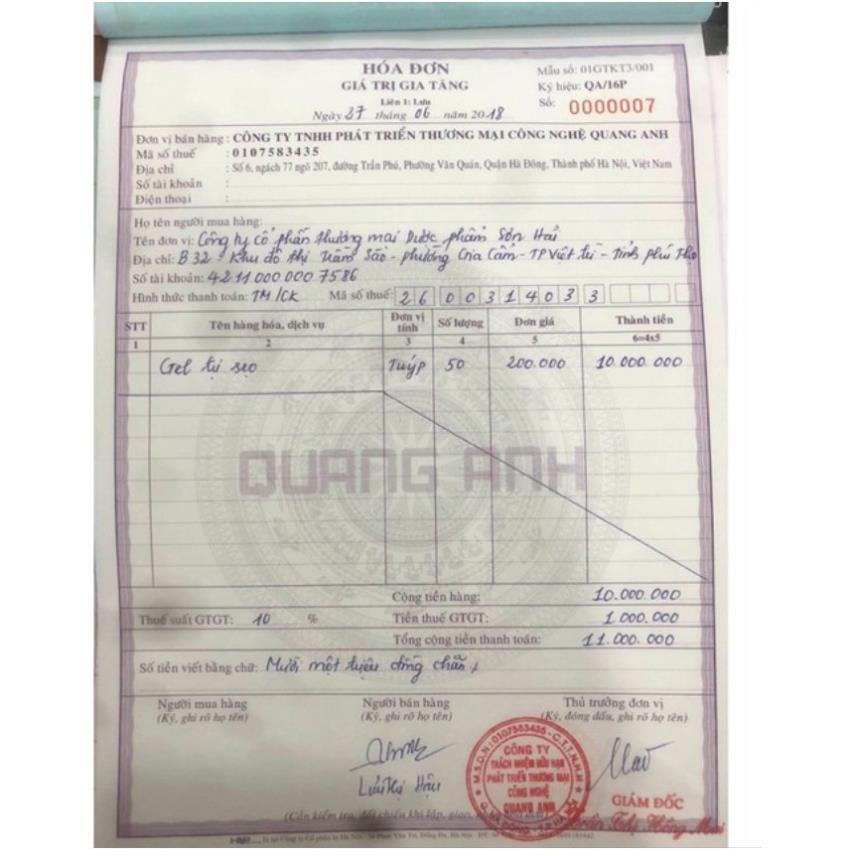 HÓA ĐƠN
GIÁ TRỊ GIA TĂNG
Liên 1: Lưu
Ngày 27 tháng 06 năm 2018
Mẫu số: 01GTKT3/001
Ký hiệu: QA/16P
Số: 0000007
Đơn vị bán hàng : CÔNG TY TNHH PHÁT TRIỂN THƯƠNG MẠI CÔNG NGHỆ QUANG ANH
Mã số thuế : 0107583435
Địa chỉ : Số 6, ngách 77 ngõ 207, đường Trần Phú, Phường Văn Quán, Quận Hà Đông, Thành phố Hà Nội, Việt Nam
Số tài khoản :
Điện thoại :
Họ tên người mua hàng:
Tên đơn vị: Công ty cổ phần thương mại Dược phẩm Sơn Hải
Địa chỉ: B32 - Khu đô thị Trầm Sào - phường Gia Cẩm - TP Việt trì - Tỉnh phú Thọ
Số tài khoản: 42110000007586
Hình thức thanh toán: TM/CK Mã số thuế: 2600314033
STT Tên hàng hóa, dịch vụ Đơn vị tính Số lượng Đơn giá Thành tiền
1 2 3 4 5 6=4x5
Gel trị sẹo Tuýp 50 200.000 10.000.000
QUANG ANH
Cộng tiền hàng: 10.000.000
Thuế suất GTGT: 10 % Tiền thuế GTGT: 1.000.000
Tổng cộng tiền thanh toán: 11.000.000
Số tiền viết bằng chữ: Mười một triệu đồng chẵn
Người mua hàng Người bán hàng Thủ trưởng đơn vị
(Ký, ghi rõ họ tên) (Ký, ghi rõ họ tên) (Ký, đóng dấu, ghi rõ họ tên)
M.S.D.N: 0107583435 - C.T.T.N.H.H
CÔNG TY
TRÁCH NHIỆM HỮU HẠN
PHÁT TRIỂN THƯƠNG MẠI
CÔNG NGHỆ
QUANG ANH
Q. HÀ ĐÔNG - T.P HÀ
Lưu Thị Hậu
GIÁM ĐỐC
Thị Hồng Mai
(Cần kiểm tra, đối chiếu khi lập, giao,